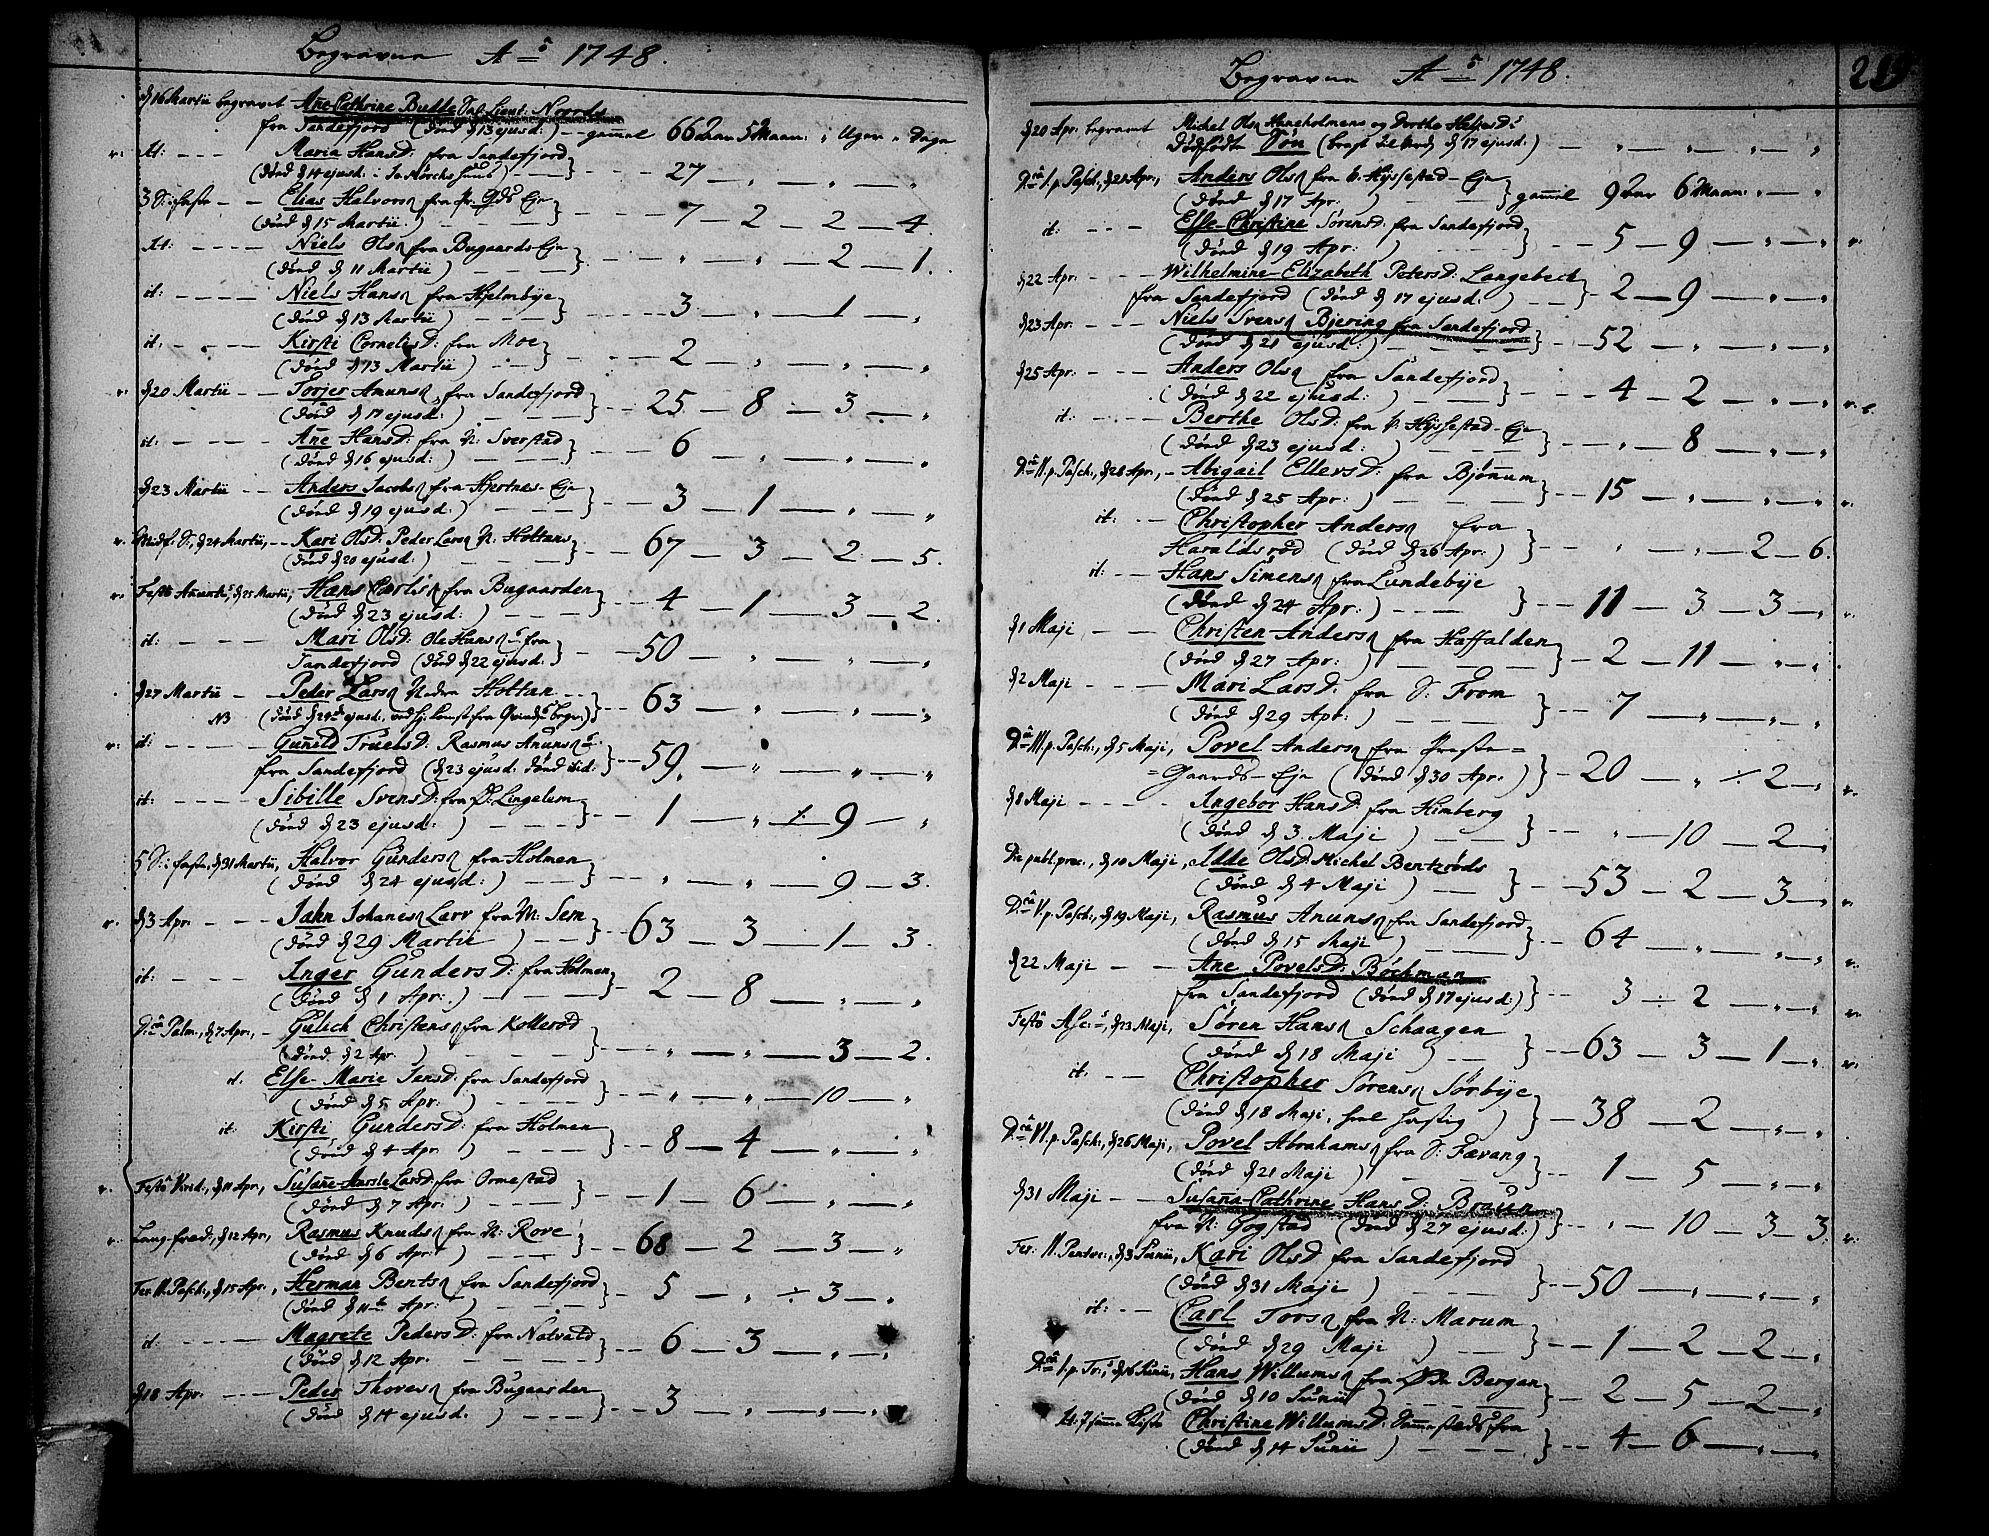 Begravne Ao 1748.
d 16 Martii begravet Ane Cathrine Budde Sal. Lieut: Noords
fra Sandefjord (død d 13 ejusd:) -- gamel 66 Aar 5 Maan: " Uger " Dage
It: --- Maria HansD: fra Sandefjord
(død d 14 ejusd: i Huus) --- 27 — " — " — "
3 S: i faste -- Elias Halvors fra Eje
(død d 15 Martii) --- 7 — 2 — 2 — 4.
It: --- Niels Ols fra Bugaards-Eje
(død d 11 Martii) --- " — " — 2 — 1.
it: --- Niels Hans fra Hjelmbye
(død d 13 Martii) --- 3 — " — 1 — "
it: --- Kirsti CornelisD: fra Moe
(død d 13 Martii) --- 2 — " — " — "
d 20 Martii -- Torjer Amuns fra Sandefjord
(død d 17 ejusd:) --- 25 — 8 — 3 — "
it: --- Ane HansD: fra N: Sverstad
(død d 16 ejusd:) --- 6 — " — " — "
d 23 Martii -- Anders Jacobs fra Hjertnes-Eje
(død d 19 ejusd:) --- 3 — 1 — " — "
Midf. S:, d 24 Martii, -- Kari OlsD: Peder Lars N: Holtans
(død d 20 ejusd:) --- 67 — 3 — 2 — 5.
Festo Anunt:, d 25 Martii, Hans Carls fra Bugaarden
(død d 23 ejusd:) --- 4 — 1 — 3 — 2.
it: --- Mari OlsD: Ole Hans fra
Sandefjord (død d 22 ejusd:) --- 50 — " — " — "
d 27 Martii -- Peder Lars Nedre Holtan
NB (død d 24 ejusd:, ved hj.komst fra Qvindes begr:) -- 63 — " — " — "
it: --- Gunild TruelsD: Rasmus Anuns
fra Sandefjord (d 23 ejusd: død ibid:) -- 59. — " — " — "
it: --- Sibille SvensD: fra Ø: Lingelem
(død d 23 ejusd:) --- 1 — " ÷ 9 — "
5 S: i faste, d 31 Martii, Halvor Gunders fra Holmen
(død d 24 ejusd:) --- " — " — 9 — 3.
d 3 Apr. --- Jahn Johanes Larv fra M: Sem
(død d 29 Martii) --- 63 — 3 — 1 — 3.
it: --- Inger GundersD: fra Holmen
(død d 1 Apr:) --- 2 — 8 — " — "
D:ca Palm:, d 7 Apr:, - Gulich Christens fra Kollerød
(død d 2 Apr.) --- " — " — 3 — 2.
it. Else-Marie JansD: fra Sandefjord
(død d 5 Apr:) --- " — " — 10 — "
it: Kirsti GundersD: fra Holmen
(død d 4 Apr) --- 8 — 4 — " — "
Festo Virid:, d 11 Apr:, Susane- LarsD: fra Ormestad
(død d 7 Apr:) --- 1 — 6 — " — "
Lang-fred:, d 12 Apr:, Rasmus Knuds fra N: Rove
(død d 6 Apr:) --- 68 — 2 — 3 — "
Fer: II. Pasch:, d 15 Apr:, Herman Bents fra Sandefjord
(død d 11te Apr:) --- 5 — " ÷ 3 — "
it: --- Magrete PedersD: fra Natvald
(død d 12 Apr. --- 6 — 3 — " — "
d 18 Apr. --- Peder Thores fra Bugaarden
(død d 14 ejusd:) --- 3 — " — " — "
Begravne Ao 1748. 219
d 20 Apr: begravet Michel Ols Haneholmens og Dorthe HeljesD:
dødfødte Søn (bragt til Verd d 17 ejusd:) — " — " — " — "
D:ca I. p. Pasch:, d 21 Apr:, Anders Ols fra V. Hyssestad-Eje
(død d 17 Apr:) gamel 9 Aar 6 Maan: " — "
it: --- Else-Christine SørensD: fra Sandefjord
(død d 19 Apr:) --- 5 — 9 — " — "
d 22 Apr. --- Wilhelmine-Elizabeth PetersD: Langebech
fra Sandefjord (død d 17 ejusd:) --- 2 — 9 — " — "
d 23 Apr. --- Niels Svens Bjering fra Sandefjord
(død d 21 ejusd:) --- 52 — " — " — "
d 25 Apr: --- Anders Ols fra Sandefjord
(død d 22 ejusd:) --- 4 — 2 — " — "
it: --- Berthe OlsD: fra V: Hyssestad-Eje
(død d 23 ejusd:) --- " — 8 — " — "
D:ca II. p. Pasch:, d 28 Apr:, - Abigail EllersD: fra Bjønum
(død d 25 Apr:) --- 15 — " — " — "
it: -- Christopher Anders fra
Haraldsrød (død d 26 Apr:) --- " — " — 2 — 6.
it: -- Hans Simens fra Lundebye
(død d 24 Apr:) --- 11 — 3 — 3 — "
d 1 Maji --- Christen Anders fra Haffalden
(død d 27 Apr:) --- 2 — 11 — " — "
d 2 Maji --- Mari LarsD: fra S: From
(død d 29 Apr:) --- 7 — " — " — "
D:ca III. p. Pasch:, d 5 Maji, Povel Anders fra Preste=
=Gaards-Eje (død d 30 Apr:) -- 20 — " ÷ 2 — "
d 8 Maji --- Ingebor HansD: fra Himberg
(død d 3 Maji) --- " — 10 — 2 — "
Die publ: prec:, d 10 Maji, Idde OlsD: Michel Bentzrøds
(død d 4 Maji) --- 53 — 2 — 3 — "
D:ca V. p. Pasch:, d 19 Maji, Rasmus Anuns fra Sandefjord
(død d 15 Maji) --- 64 — " — " — "
d 22 Maji --- Ane PovelsD: Bøchman
fra Sandefjord (død d 17 ejusd:) 3 ÷ 2 — " — "
Festo Asc:, d 23 Maji, Søren Hans Schaagen
(død d 18 Maji) --- 63 — 3 — 1 — "
it: --- Christopher Sørens Sørbye
(død d 18 Maji, heel hastig) -- 38 — 2 — " — "
D:ca VI. p. Pasch:, d 26 Maji, Povel Abrahams fra S: Fævang
(død d 21 Maji) --- 1 — 5 — " — "
d 31 Maji -- Susana-Cathrine HansD: Bruun
fra N: Gogstad (død d 27 ejusd:) -- " — 10 — 3 — 3.
Fer. II. Pentec:, d 3 Junii, Kari OlsD: fra Sandefjord
(død d 31 Maji) --- 50 — " — " — "
it: --- Carl Tors fra N: Marum
(død d 29 Maji) --- 1 — 2 — 2 — "
D:ca I. p. Tr:, d 16 Junii, Hans Willums fra Øde Bergan
(død d 10 Junii) --- 2 — 5 — 2 — "
It: i samme Kiste Christine WillumsD: samesteds fra
(død d 14 Junii) --- 4 — 6 — " — "